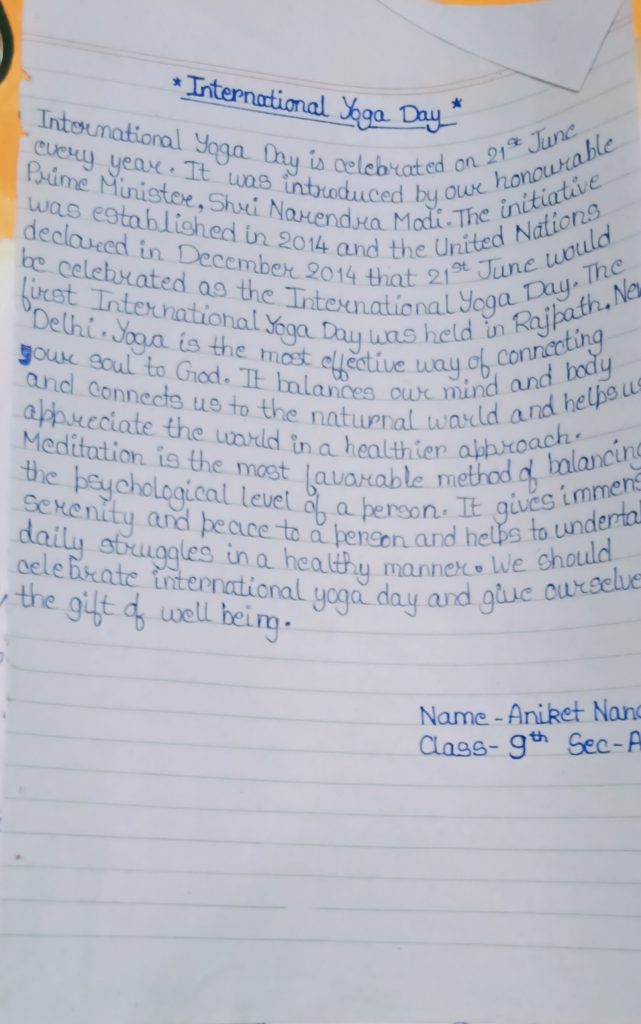 * International Yoga Day *
International Yoga Day is celebrated on 21st June
every year. It was introduced by our honourable
Prime Minister, Shri Narendra Modi. The initiative
was established in 2014 and the United Nations
declared in December 2014 that 21st June would
be celebrated as the International Yoga Day. The
first International Yoga Day was held in Rajpath, New
Delhi. Yoga is the most effective way of connecting
your soul to God. It balances our mind and body
and connects us to the naturnal world and helps us
appreciate the world in a healthier approach.
Meditation is the most favourable method of balancing
the psychological level of a person. It gives immens
serenity and peace to a person and helps to underta
daily struggles in a healthy manner. We should
celebrate international yoga day and give ourselve
the gift of well being.
Name - Aniket Nan
Class- 9th Sec-A